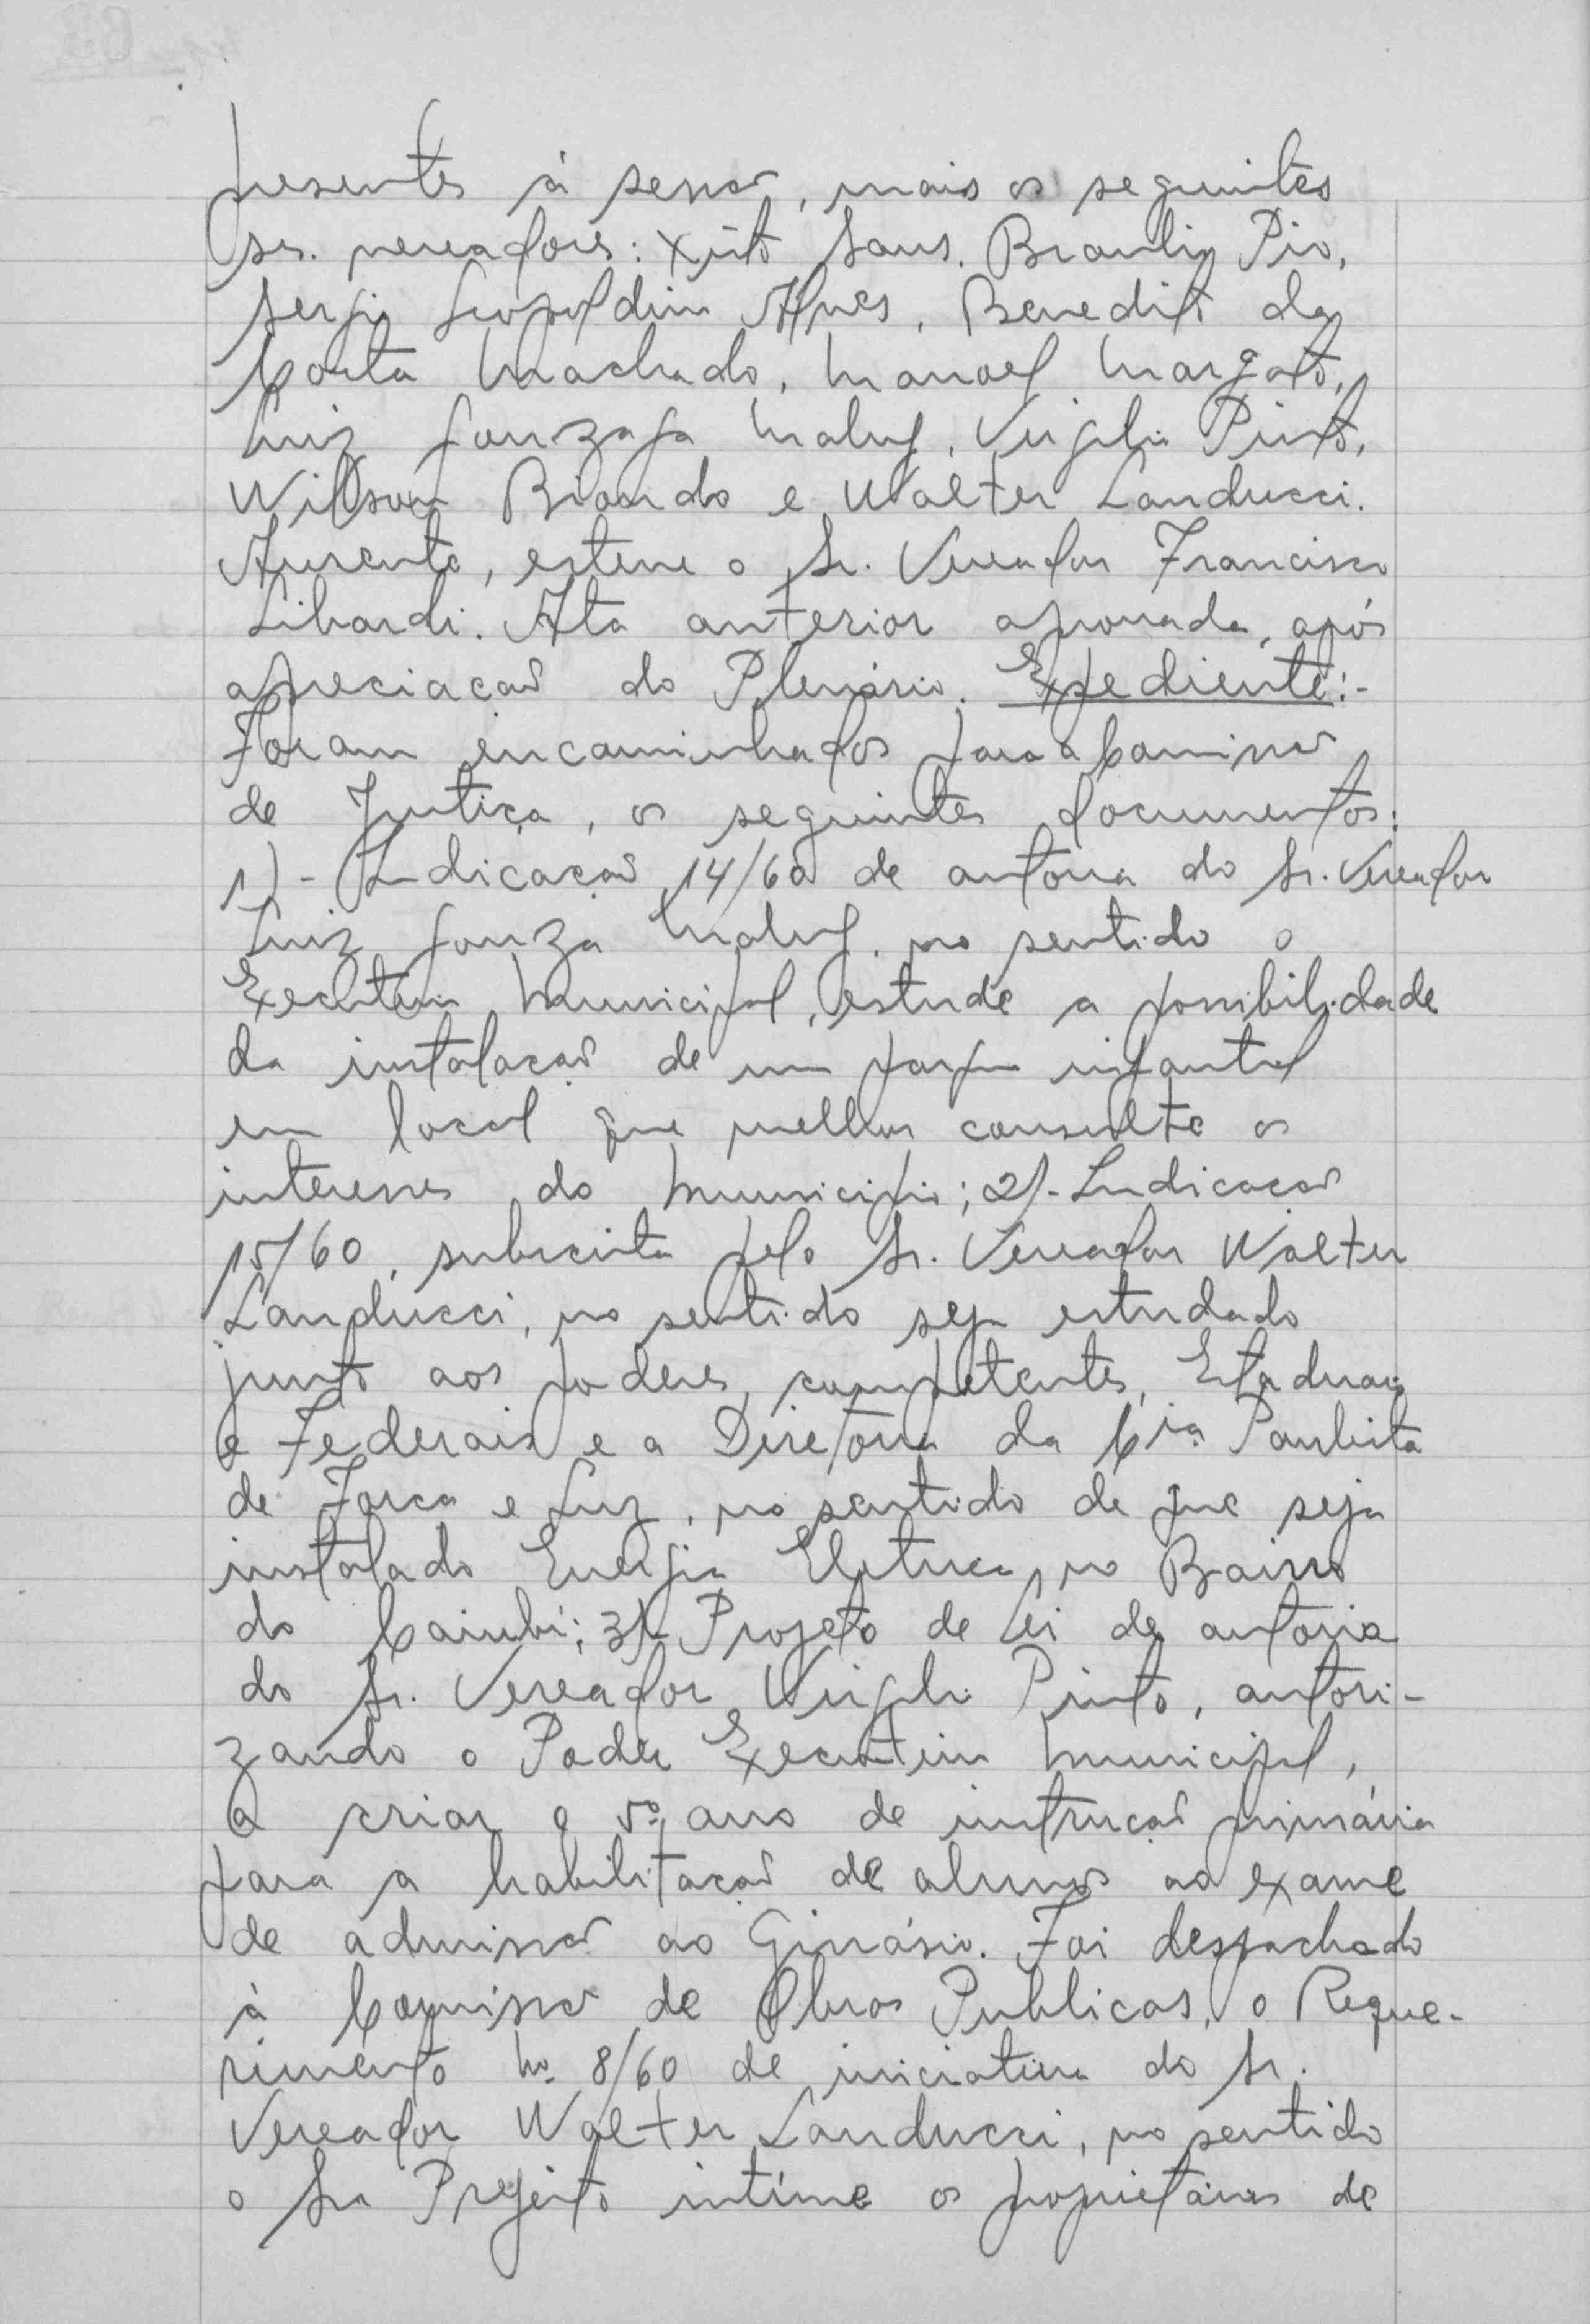 presentes à sessão, mais os seguintes
srs. vereadores: Xisto Sans. Braulio Pio,
Sergio Leopoldino Alves, Benedito da
Costa Machado, Manoel Margato,
Luiz Gonzaga Maluf, Virgilio Pinto,
Wilson Briando e Walter Landucci.
Ausente, esteve o Sr. Vereador Francisco
Libardi. Ata anterior aprovada, após
apreciação do Plenário. Expediente:-
Foram encaminhados para a Comissão
de Justiça, os seguintes documentos:
1)- Indicação 14/60 de autoria do Sr. Vereador
Luiz Gonza Maluf, no sentido o
Executivo Municipal, estude a possibilidade
da instalação de um parque infantil
em local que melhor consulte os
interesses do Municipio; 2)- Indicação
15/60, subscrita pelo Sr. Vereador Walter
Landucci, no sentido seja estudado
junto aos poderes, competentes, Estaduais
e Federais e a Diretoria da Cia. Paulista
de Força e Luz, no sentido de que seja
instalado Energia Eletrica, no Bairro
do Caiubí; 3)- Projeto de Lei de autoria
do Sr. Vereador Virgilio Pinto, autori-
zando o Poder Executivo Municipal,
a criar o 5º ano de instrução primária
para a habilitação de alunos ao exame
de admissão ao Ginásio. Foi despachado
à Comissão de Obras Publicas, o Reque-
rimento Nº 8/60 de iniciativa do Sr.
Vereador Walter Landucci, no sentido
o Snr Prefeito intíme os proprietários de